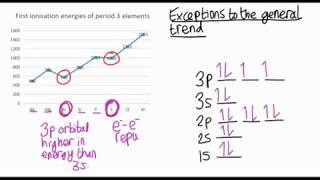 First ionisation energies of period 3 elements
Exceptions to the general
trend
1600
1400
1200
1000
800
600
400
200
0
Na Mg Al Si P S Cl Ar
3p orbital
higher in
energy than
3s.
e⁻-e⁻
repu
3p 1L 1 1
3s 1L
2p 1L 1L 1L
2s 1L
1s 1L